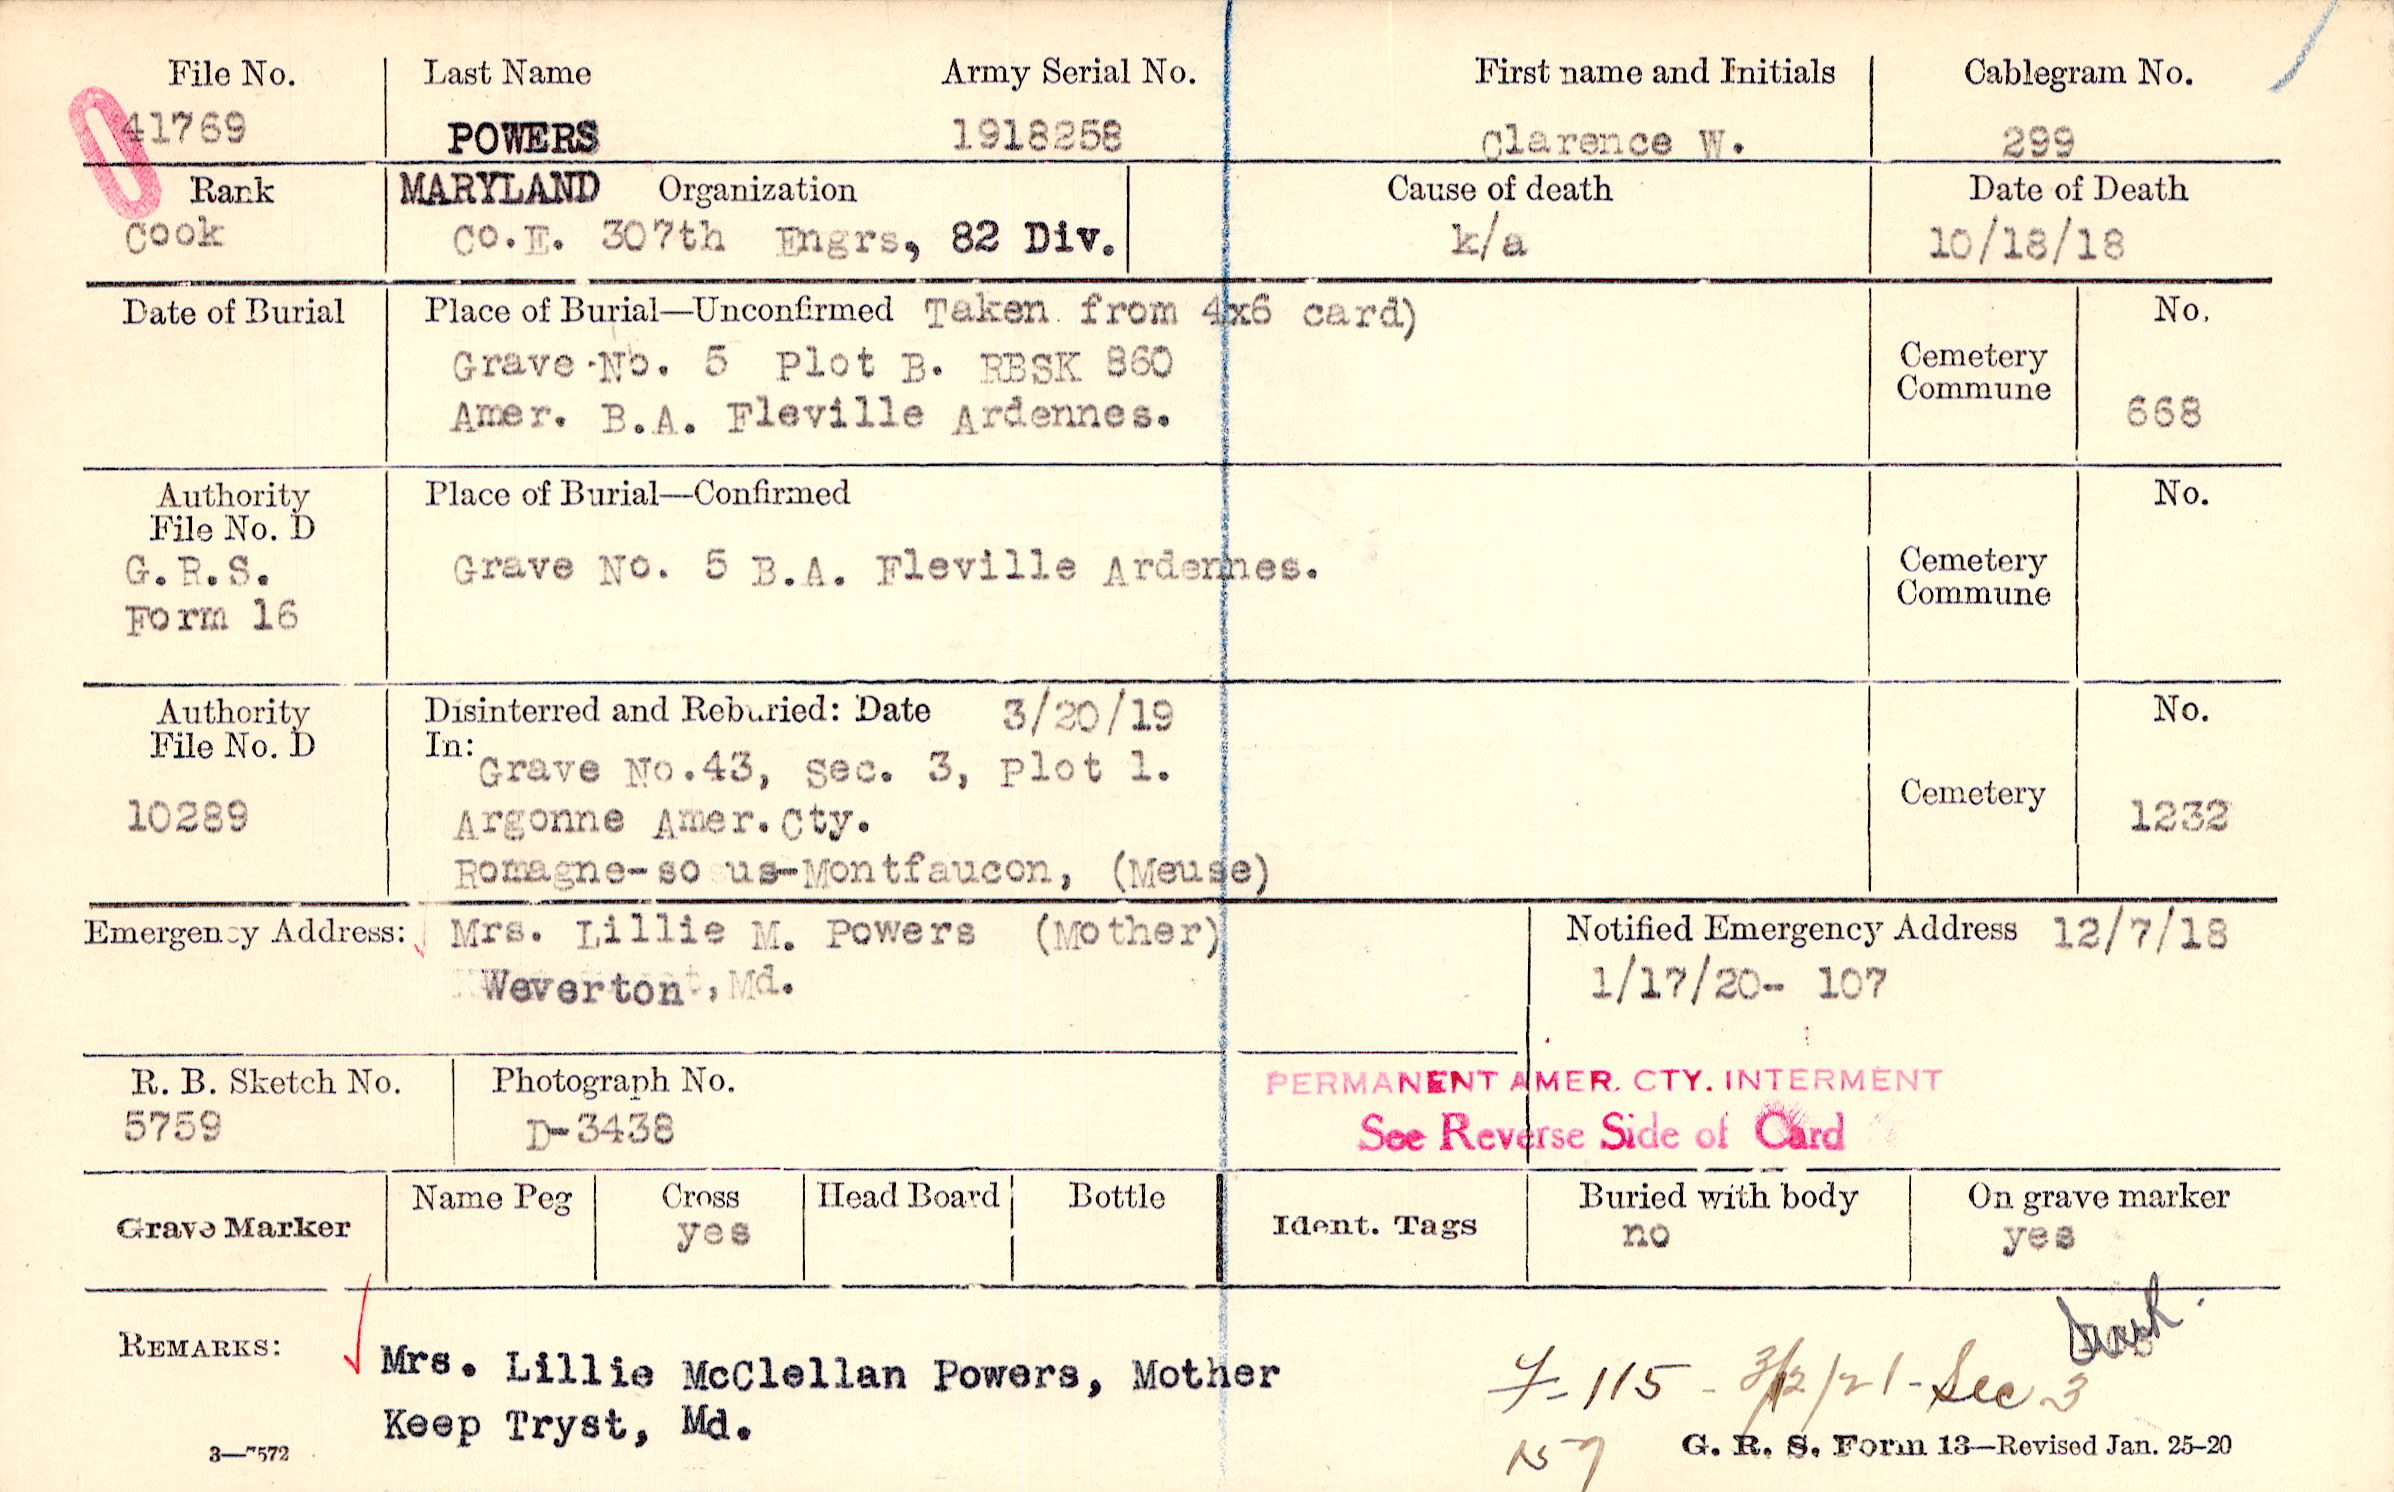 File No. Last Name Army Serial No. First name and Initials Cablegram No.
41769 POWERS 1918258 Clarence W. 299
Rank MARYLAND Organization Cause of death Date of Death
Cook Co.E. 307th Engrs, 82 Div. k/a 10/18/18
Date of Burial Place of Burial—Unconfirmed Taken from 4x6 card) No.
Grave No. 5 Plot B. RBSK 860 Cemetery
Commune
Amer. B.A. Fleville Ardennes. 668
Authority Place of Burial—Confirmed No.
File No. D
G.R.S. Grave No. 5 B.A. Fleville Ardennes. Cemetery
Form 16 Commune
Authority Disinterred and Reburied: Date 3/20/19 No.
File No. D In:
Grave No.43, Sec. 3, Plot 1. Cemetery
10289 Argonne Amer.Cty. 1232
Romagne-so us-Montfaucon, (Meuse)
Emergency Address: Mrs. Lillie M. Powers (Mother) Notified Emergency Address 12/7/18
Weverton, Md. 1/17/20- 107
R. B. Sketch No. Photograph No. PERMANENT AMER. CTY. INTERMENT
5759 D-3438 See Reverse Side of Card
Grave Marker Name Peg Cross Head Board Bottle Ident. Tags Buried with body On grave marker
yes no yes
REMARKS: Mrs. Lillie McClellan Powers, Mother
115 - Sec 3
Keep Tryst, Md.
3—7572 G. R. S. Form 13—Revised Jan. 25-20